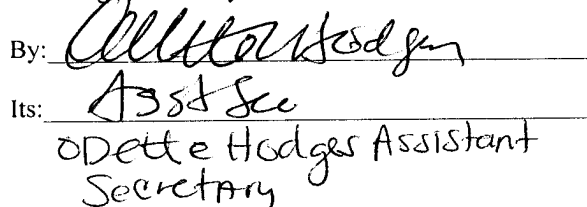 By: Odette Hodges
Its: Asst Sec
ODette Hodges Assistant
Secretary